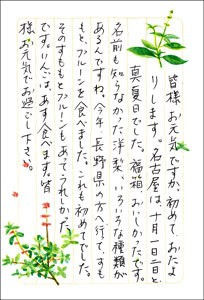 皆様、お元気ですか、初めて、おたよ
りします。名古屋は、十月一日二日と、
真夏日でした。福箱おいしかったです。
名前も知らなかった洋梨、いろいろな種類が
あるんですね。今年、長野県の方へ行って、すも
もとプルーンを食べました。これも初めてでした。
そのすももとプルーンもあってうれしかった
です。りんごは、あす食べます。皆
様、お元気でお過ごし下さい。